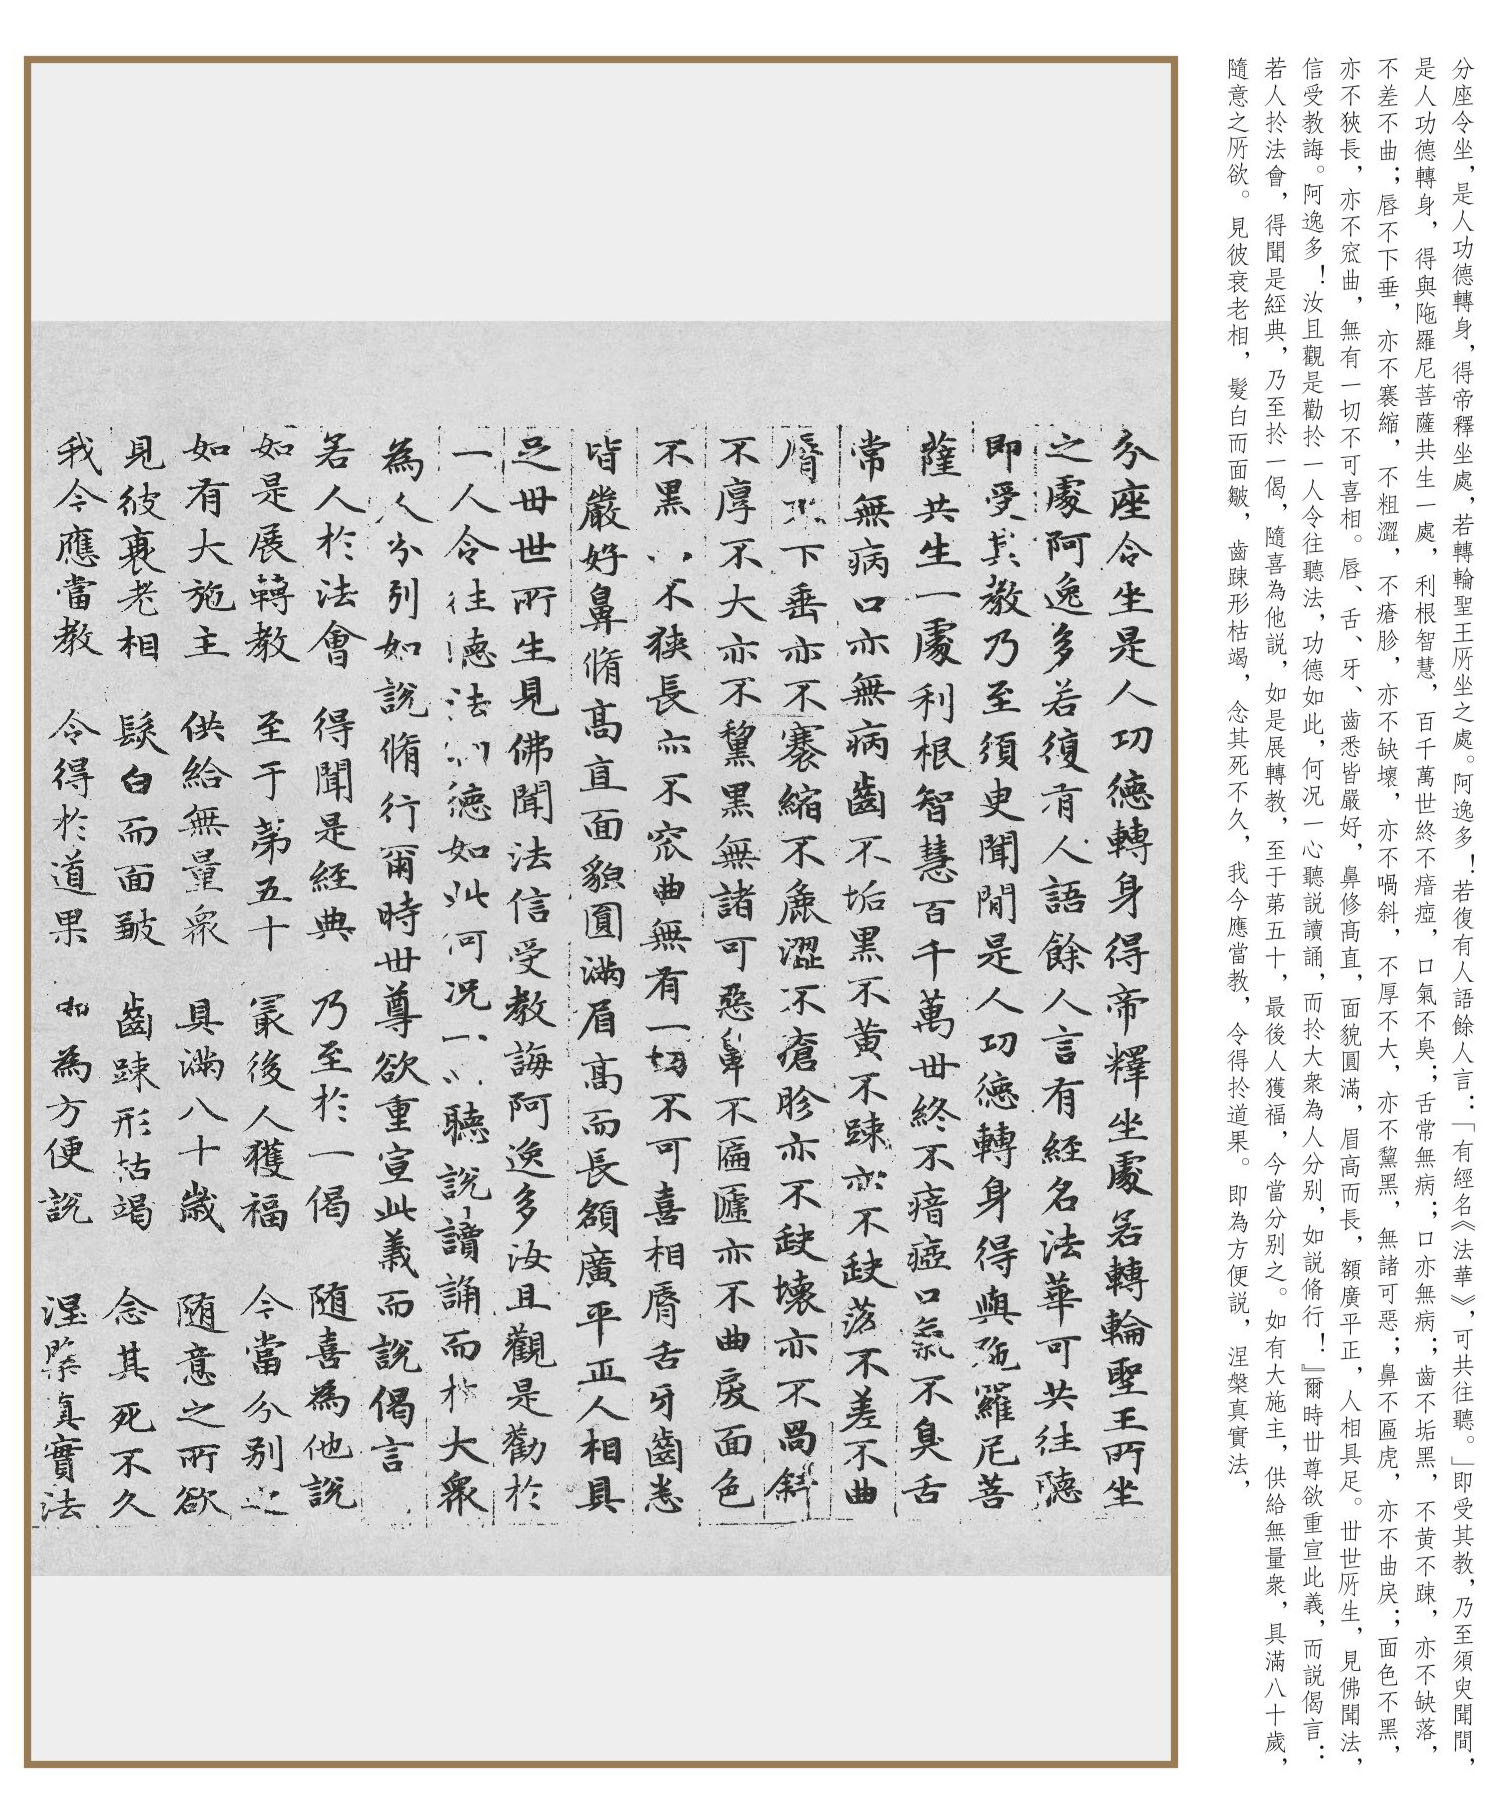 分座令坐，是人功德轉身，得帝釋坐處，若轉輪聖王所坐之處。阿逸多！若復有人語餘人言：「有經名《法華》，可共往聽。」即受其教，乃至須臾聞間，
是人功德轉身，得與陁羅尼菩薩共生一處，利根智慧，百千萬世終不瘖瘂，口氣不臭；舌常無病；口亦無病；齒不垢黑，不黄不踈，亦不缺落，
不差不曲；唇不下垂，亦不褰縮，不粗澀，不瘡胗，亦不缺壞，亦不喎斜，不厚不大，亦不黧黑，無諸可惡；鼻不匾虎，亦不曲戾；面色不黑，
亦不狹長，亦不窊曲，無有一切不可喜相。唇、舌、牙、齒悉皆嚴好，鼻修髙直，面貌圓滿，眉高而長，額廣平正，人相具足。丗世所生，見佛聞法，
信受教誨。阿逸多！汝且觀是勸扵一人令往聽法，功德如此，何况一心聽説讀誦，而扵大衆為人分别，如説脩行！』爾時丗尊欲重宣此義，而説偈言：
若人扵法會，得聞是經典，乃至扵一偈，隨喜為他説，如是展轉教，至于第五十，最後人獲福，今當分别之。如有大施主，供給無量衆，具滿八十歲，
隨意之所欲。見彼衰老相，髮白而面皺，齒踈形枯竭，念其死不久，我今應當教，令得扵道果。即為方便説，涅槃真實法，
分座令坐是人功德轉身得帝釋坐處若轉輪聖王所坐
之處阿逸多若復有人語餘人言有經名法華可共往聽
即受其教乃至須臾聞間是人功德轉身得與陁羅尼菩
薩共生一處利根智慧百千萬世終不瘖瘂口氣不臭舌
常無病口亦無病齒不垢黑不黄不踈亦不缺落不差不曲
脣不下垂亦不褰縮不麁澀不瘡胗亦不缺壞亦不咼斜
不厚不大亦不黧黑無諸可惡鼻不匾㔸亦不曲戾面色
不黑亦不狹長亦不窊曲無有一切不可喜相脣舌牙齒悉
皆嚴好鼻脩髙直面貌圓滿眉髙而長額廣平正人相具
足丗世所生見佛聞法信受教誨阿逸多汝且觀是勸扵
一人令往聽法功德如此何况一心聽説讀誦而扵大衆
為人分别如説脩行爾時丗尊欲重宣此義而説偈言
若人扵法會　得聞是經典　乃至扵一偈　隨喜為他説
如是展轉教　至于第五十　冣後人獲福　今當分别之
如有大施主　供給無量衆　具滿八十歲　隨意之所欲
見彼衰老相　髮白而面皺　齒踈形枯竭　念其死不久
我今應當教　令得扵道果　即為方便説　涅槃真實法